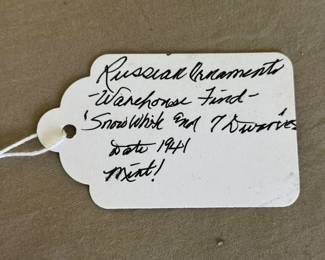 Russian Ornaments
-Warehouse Find-
"Snow White and 7 Dwarves
Date 1941
Mint!